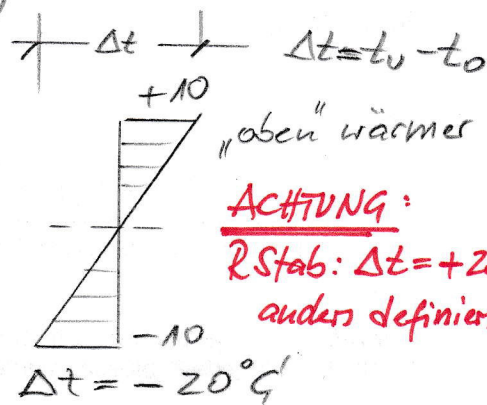 Δt Δt = tu - to
+10
„oben" wärmer
ACHTUNG:
RStab: Δt = +2
anders definier
-10
Δt = - 20°C